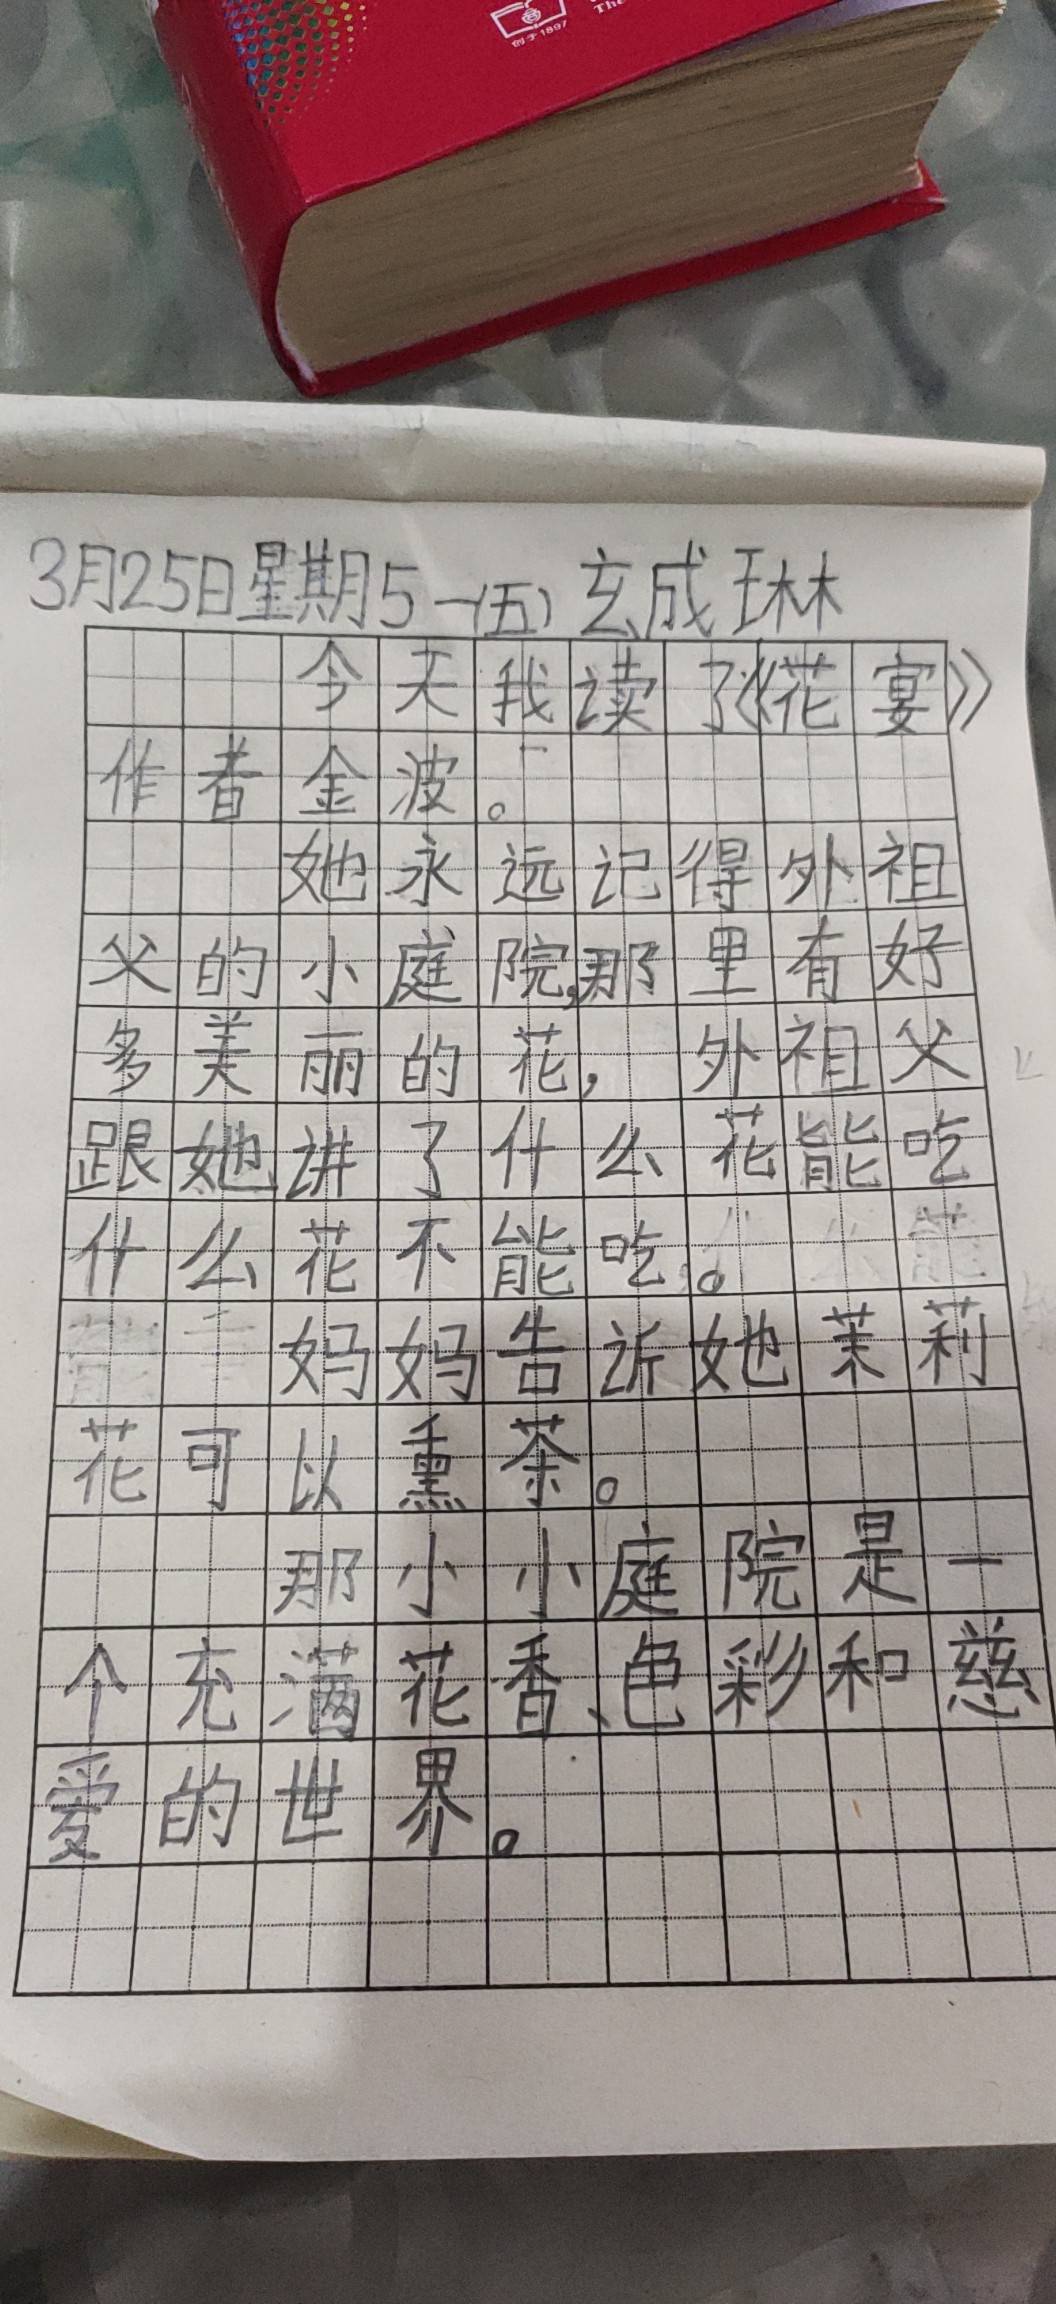 创于1897
The
3月25日星期5一(五)玄成琳
今天我读了《花宴》
作者金波。
她永远记得外祖
父的小庭院,那里有好
多美丽的花,外祖父
跟她讲了什么花能吃
什么花不能吃。
妈妈告诉她茉莉
花可以熏茶。
那小小庭院是一
个充满花香、色彩和慈
爱的世界。